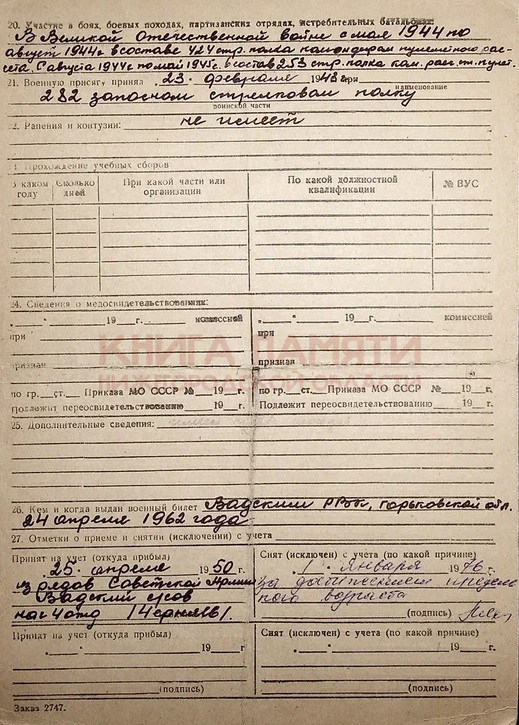 20. Участие в боях, боевых походах, партизанских отрядах, истребительных батальонах:
В Великой Отечественной войне с мая 1944 по
август 1944г в составе 424 стр. полка командиром пулеметного рас-
чета. С августа 1944г по май 1945г. в состав 253 стр. полка ком. расч. ст. пулет.
21. Военную присягу принял 23 февраля 1943г при
наименование
282 запасном стрелковом полку
воинской части
22. Ранения и контузии: не имеет
Прохождение учебных сборов
В каком году
Сколько дней
При какой части или организации
По какой должностной квалификации
№ ВУС
24. Сведения о медосвидетельствовании:
" " 19 г. комиссией
при
признан
по гр. ст. Приказа МО СССР № 19 г.
Подлежит переосвидетельствованию 19 г.
" " 19 г. комиссией
при
признан
по гр. ст. Приказа МО СССР № 19 г.
Подлежит переосвидетельствованию 19 г.
КНИГА ПАМЯТИ
НИЖЕГОРОДСКОЙ ОБЛАСТИ
25. Дополнительные сведения:
26. Кем и когда выдан военный билет Вадским РВК, Горьковской обл.
24 апреля 1962 года
27. Отметки о приеме и снятии (исключении) с учета
Принят на учет (откуда прибыл)
25. апреля 1950 г.
из рядов Советской Армии
Вадский
Снят (исключен) с учета (по какой причине)
" 1 " января 1976 г.
за достижением предель
ного возраста
(подпись)
Принят на учет (откуда прибыл)
" " 19 г
(подпись)
Снят (исключен) с учета (по какой причине)
" " 19 г.
(подпись)
Заказ 2747.